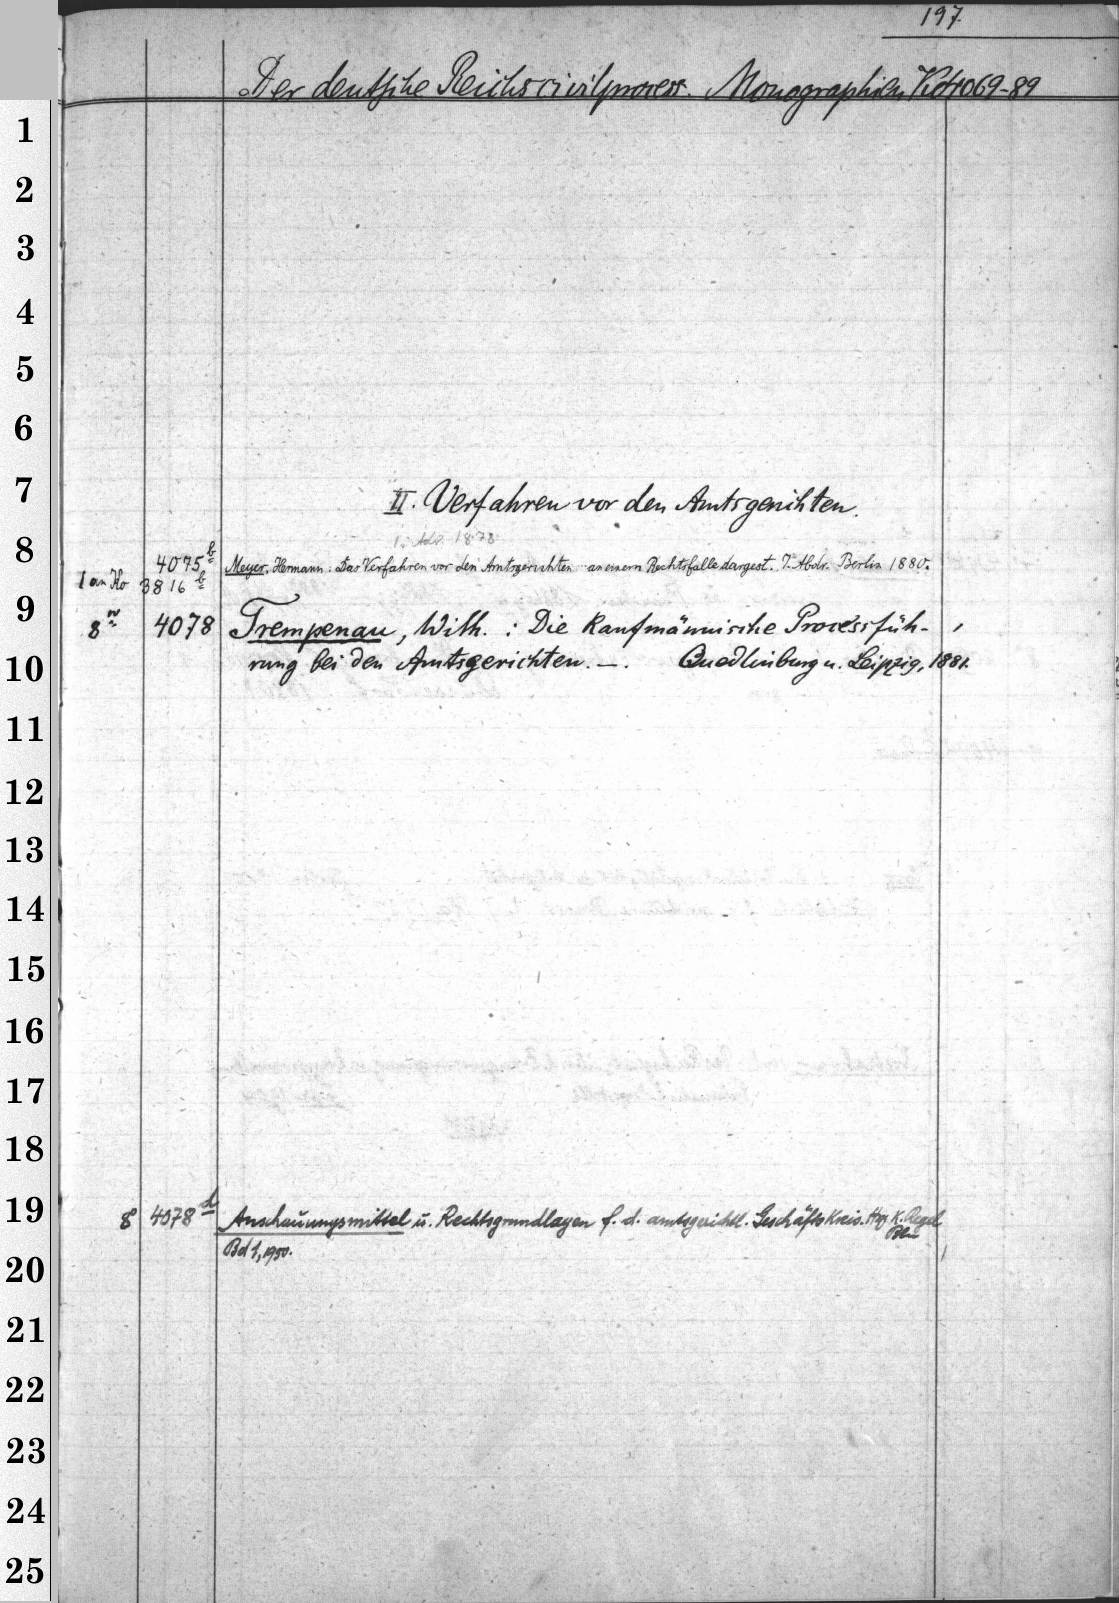 197.
Der deutsche Reichscivilprocess. Monographien. Kd 4069-89
1
2
3
4
5
6
7
II. Verfahren vor den Amtsgerichten.
8
1. Abdr. 1878
4075 b Meyer, Hermann: Das Verfahren vor den Amtsgerichten an einem Rechtsfalle dargest. 7. Abdr. Berlin 1880.
1 an Ko 3816 b
9
8º 4078 Trempenau, Wilh.: Die kaufmännische Processfüh-
10
rung bei den Amtsgerichten. —. Quedlinburg u. Leipzig, 1881.
11
12
13
14
15
16
17
18
19
8º 4078 d Anschauungsmittel u. Rechtsgrundlagen f. d. amtsgerichtl. Geschäftskreis. Hrg K. Regel
Bln
Bd 1, 1950.
20
21
22
23
24
25